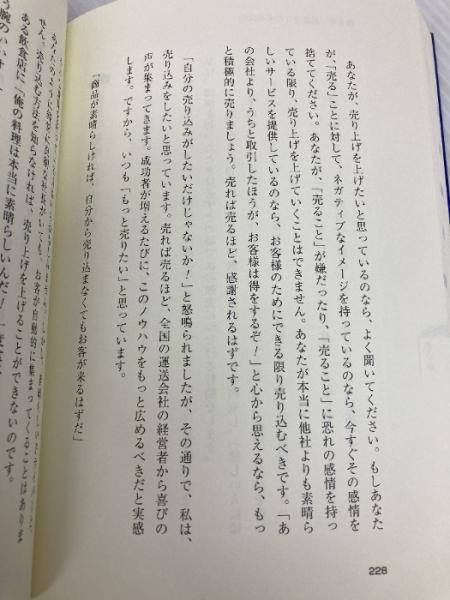 あなたが、売り上げを上げたいと思っているのなら、よく聞いてください。もしあなた
が、「売る」ことに対して、ネガティブなイメージを持っているのなら、今すぐその感情を
捨ててください。あなたが、「売ること」が嫌だったり、「売ること」に恐れの感情を持っ
ている限り、売り上げを上げていくことはできません。あなたが本当に他社よりも素晴ら
しいサービスを提供しているのなら、お客様のためにできる限り売り込むべきです。「あ
の会社より、うちと取引したほうが、お客様は得をするぞ！」と心から思えるなら、もっ
と積極的に売りましょう。売れば売るほど、感謝されるはずです。
「自分の売り込みがしたいだけじゃないか！」と怒鳴られましたが、その通りで、私は、
売り込みをしたいと思っています。売れば売るほど、全国の運送会社の経営者から喜びの
声が集まってきます。成功者が増えるたびに、このノウハウをもっと広めるべきだと実感
します。ですから、いつも「もっと売りたい」と思っています。
「商品が素晴らしければ、自分から売り込まなくてもお客が来るはずだ」
せん。売り込む方法を知らなければ、売り上げを上げることができないのです。
ある飲食店に「俺の料理は本当に素晴らしいんだ！
228